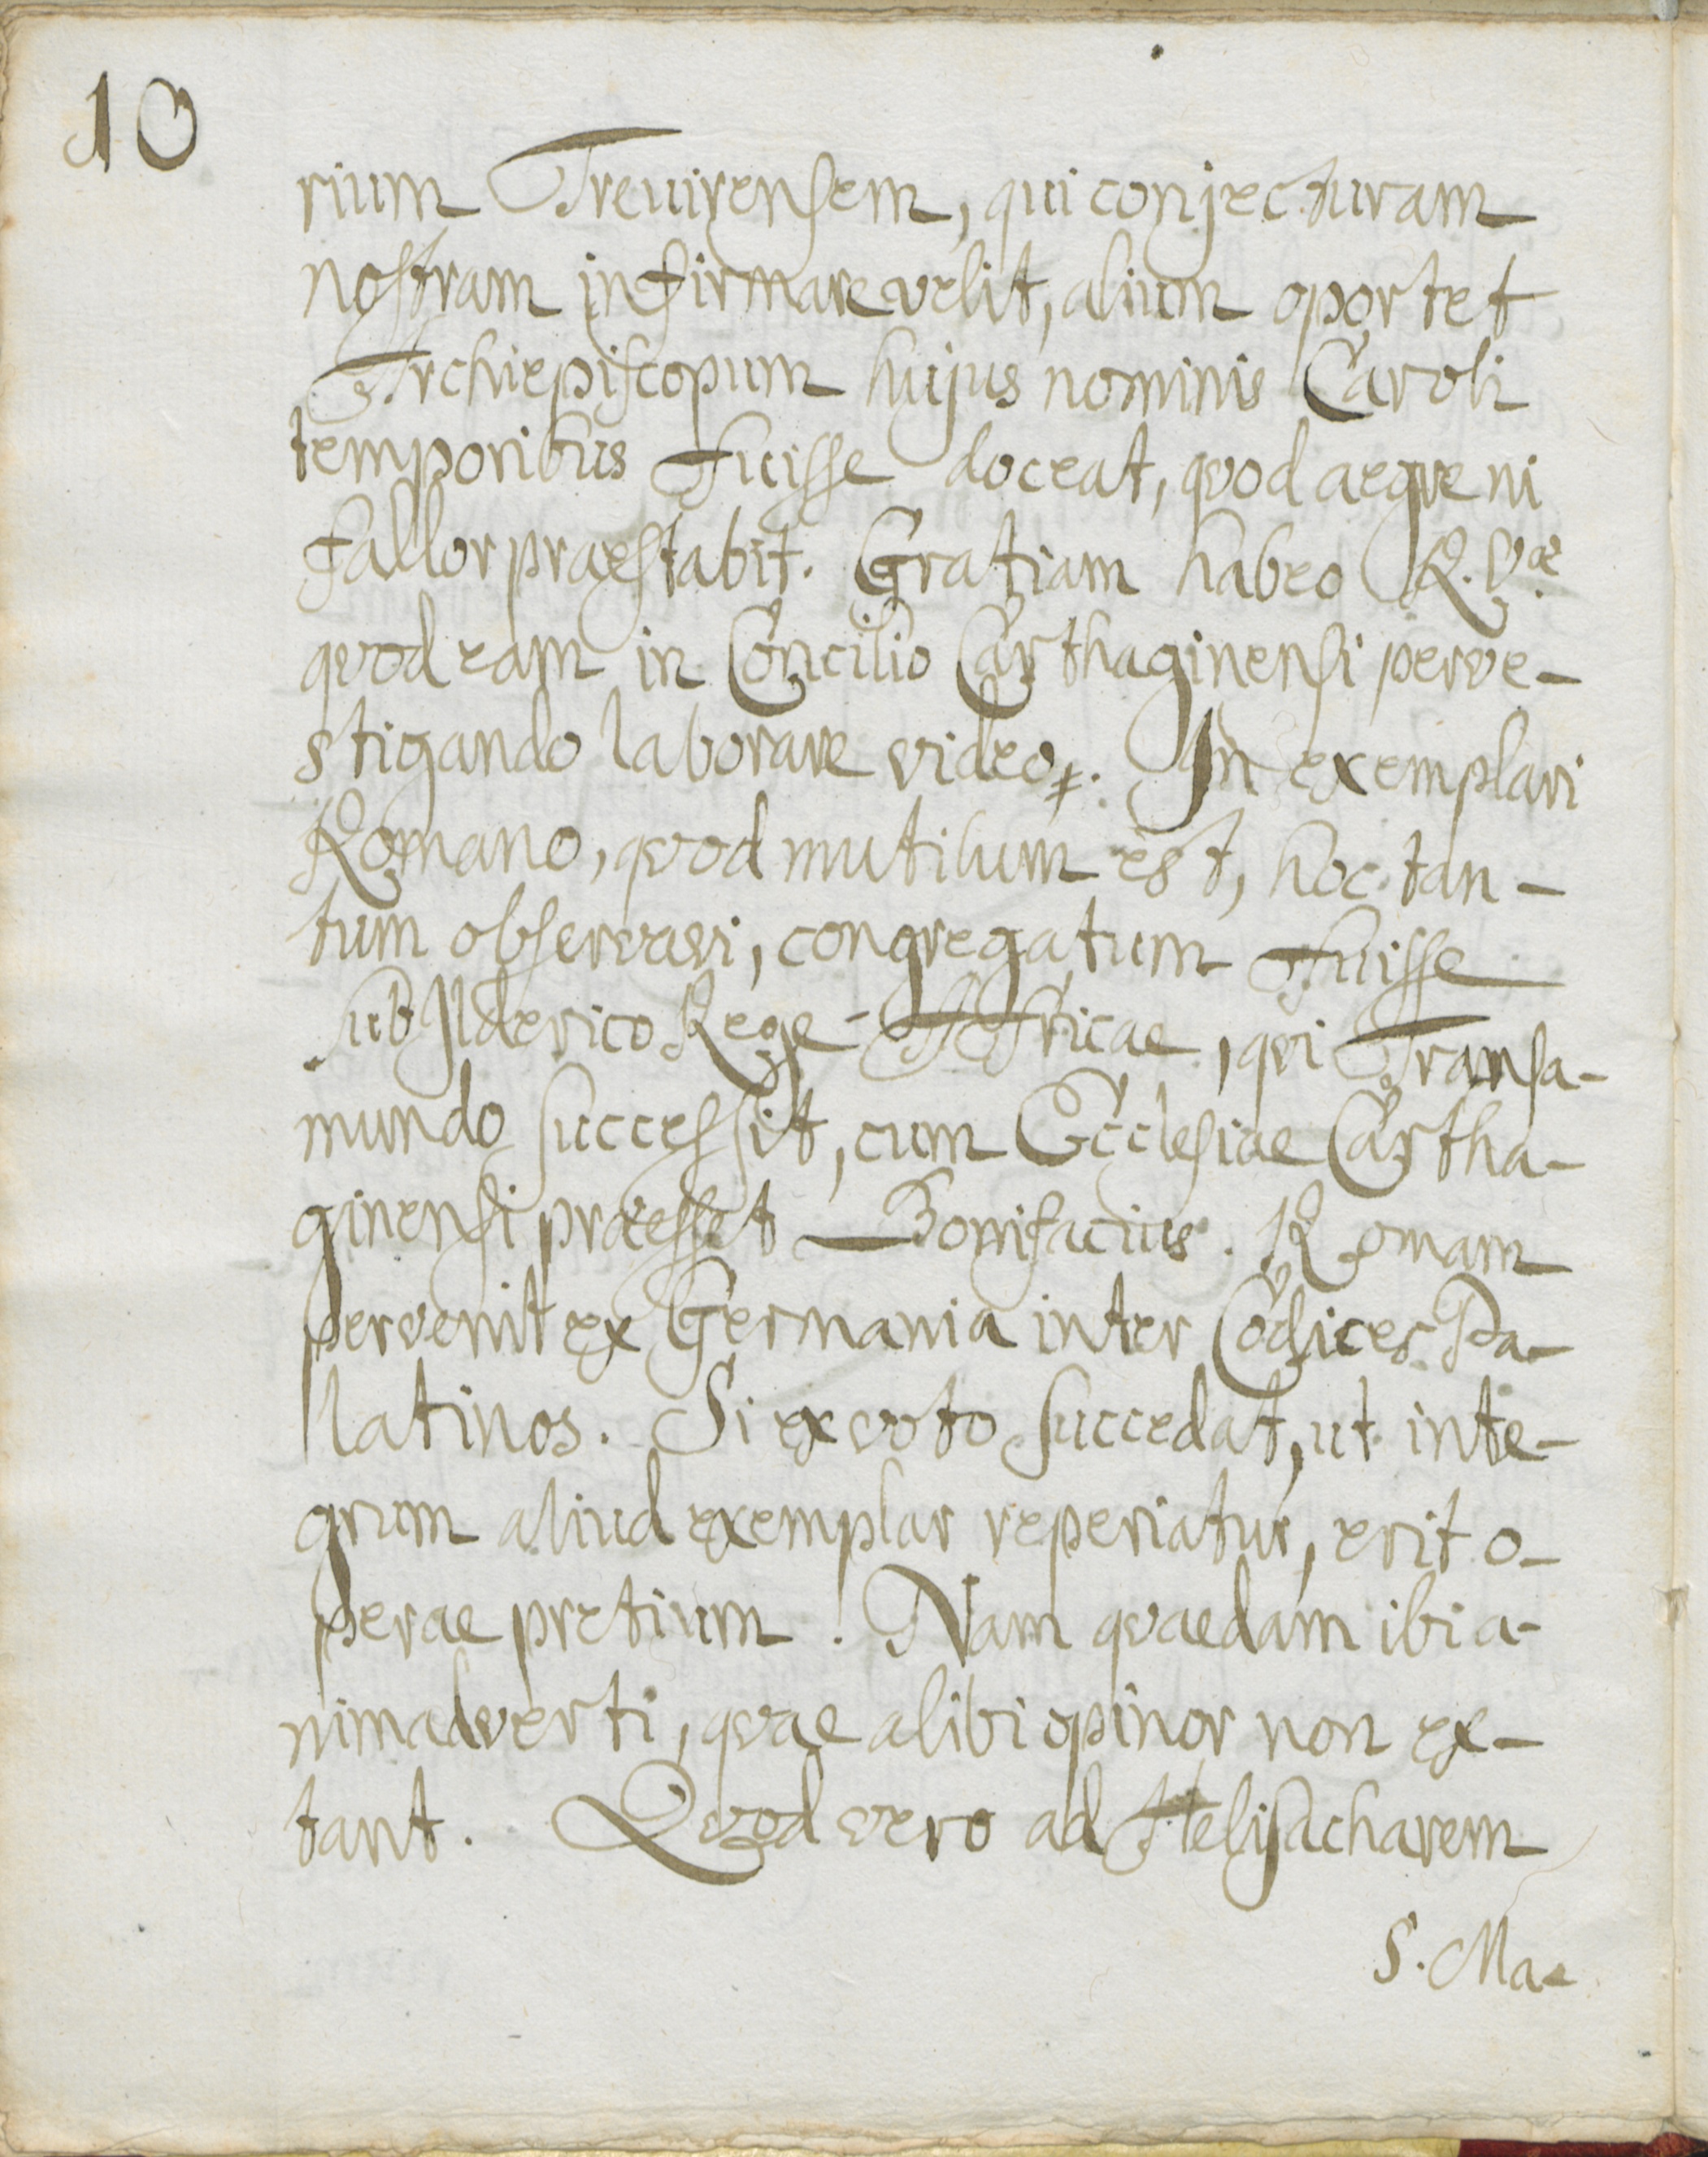 10
rium Treuirensem, qui conjecturam
nostram infirmare velit, alium oportet
Archiepiscopum hujus nominis Caroli
temporibus fuisse doceat, qvod aeqve ni
fallor praestabit. Gratiam habeo R. Væ
qvod eam in Concilio Carthaginensi perve-
stigando laborare video. In exemplari
Romano, qvod mutilum est, hoc tan-
tum observavi, congregatum fuisse
sub Ilderico Rege Africae, qvi Transa-
mundo successit, cum Ecclesiae Cartha-
ginensi præesset Bonifacius. Romam
pervenit ex Germania inter Codices Pa-
latinos. Si ex voto succedat, ut inte-
grum aliud exemplar reperiatur, erit o-
perae pretium. Nam qvaedam ibi a-
nimadverti, qvae alibi opinor non ex-
tant. Qvod vero ad Helisacharem
S. Ma-